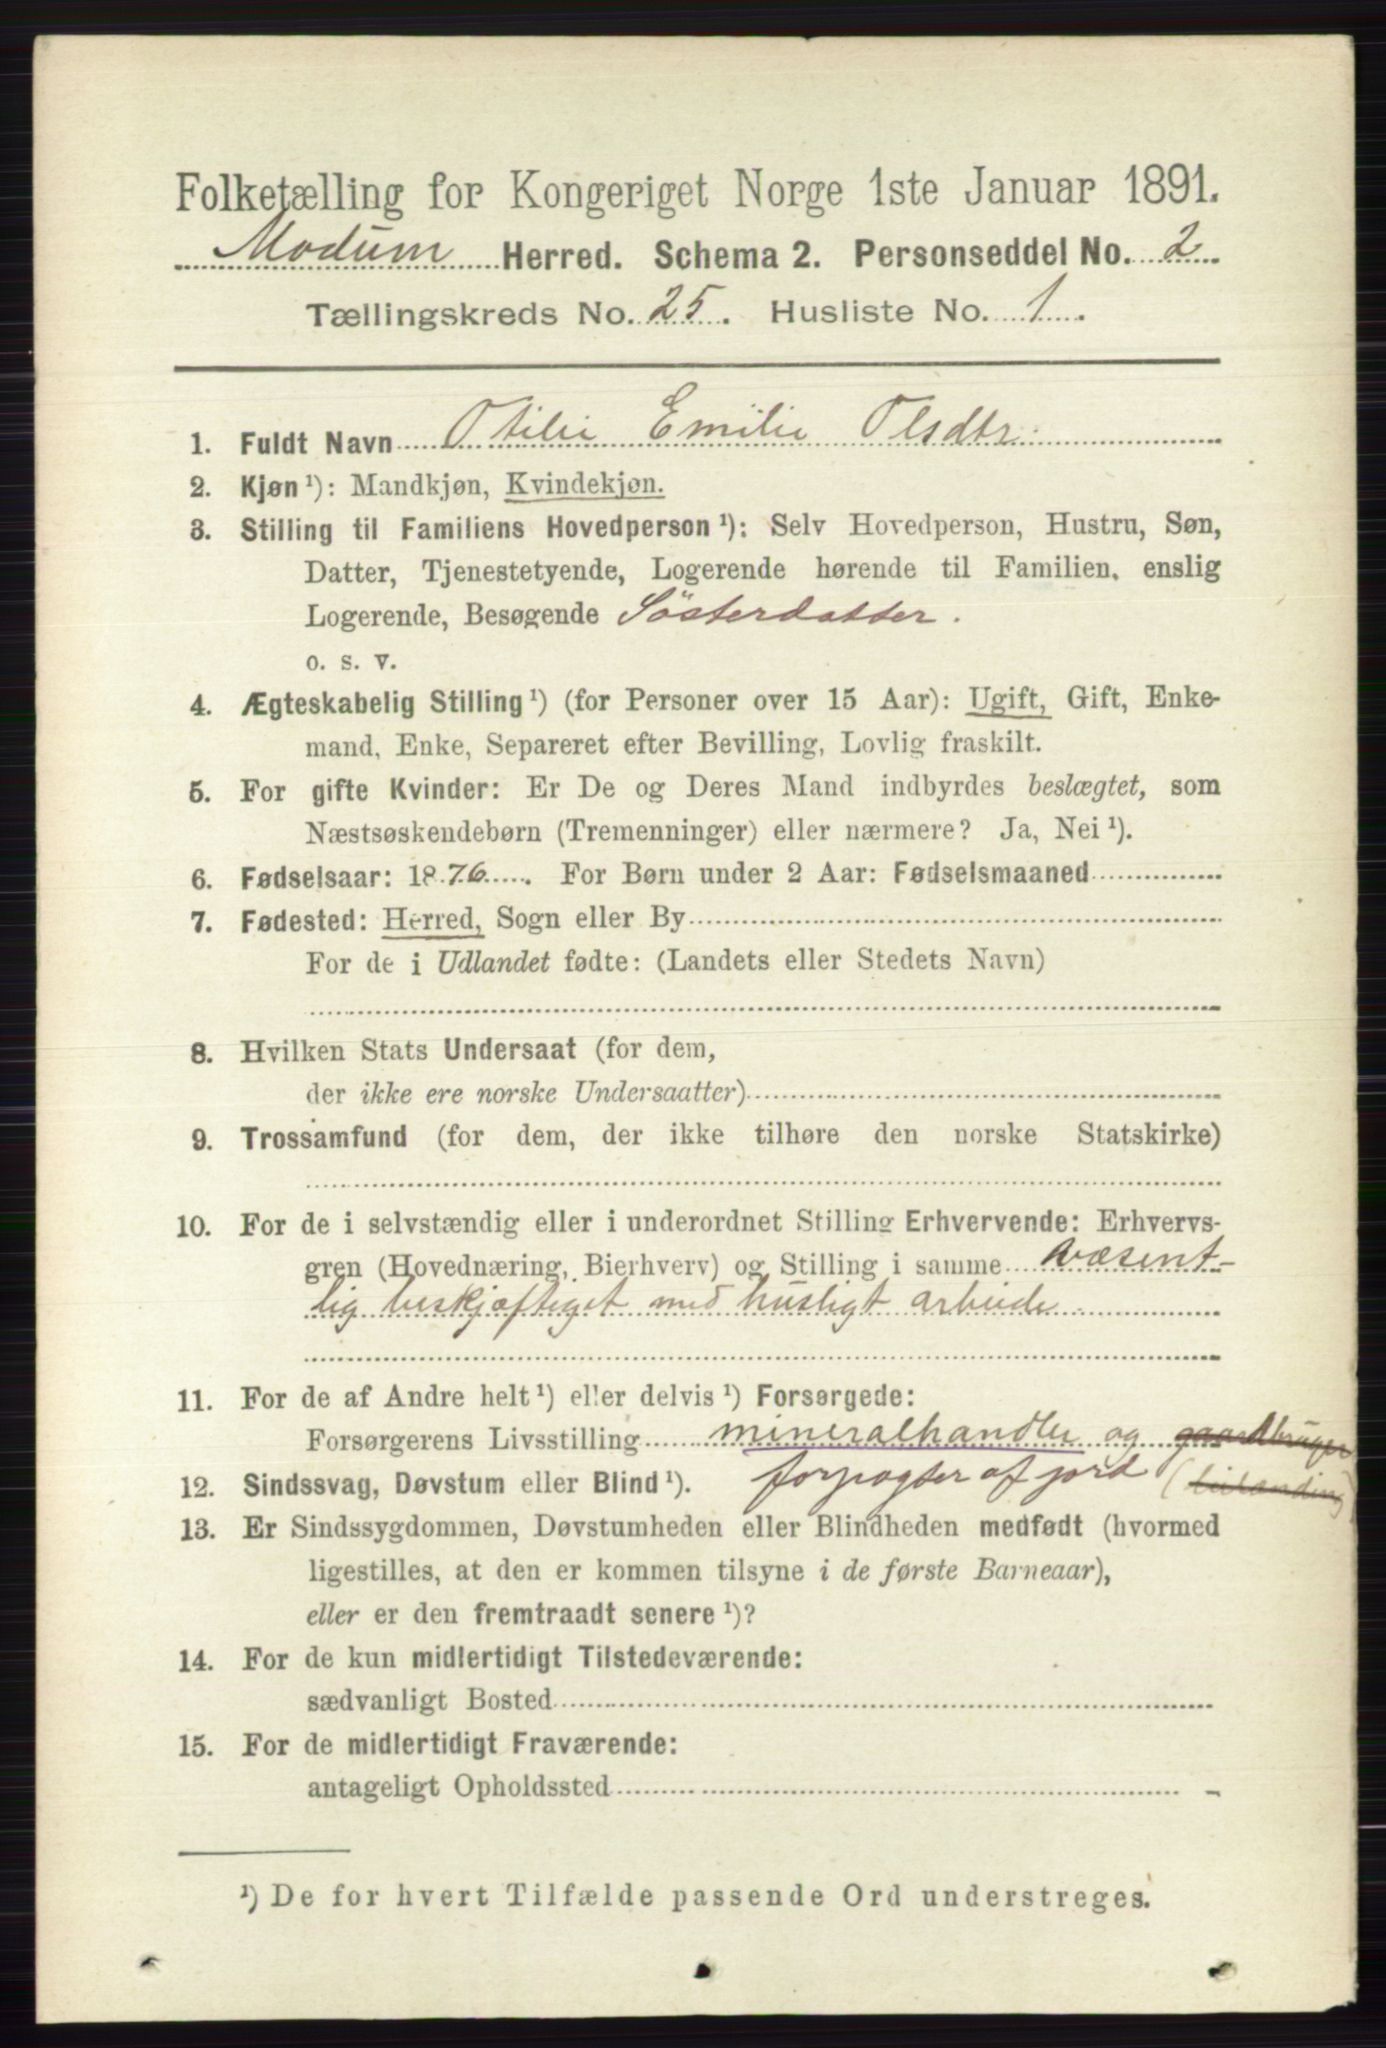 Folketælling for Kongeriget Norge 1ste Januar 1891.
Modum Herred. Schema 2. Personseddel No. 2.
Tællingskreds No. 25. Husliste No. 1.
1. Fuldt Navn Otilie Emilie Olsdtr.
2. Kjøn ¹): Mandkjøn, Kvindekjøn.
3. Stilling til Familiens Hovedperson ¹): Selv Hovedperson, Hustru, Søn,
Datter, Tjenestetyende, Logerende hørende til Familien, enslig
Logerende, Besøgende Sösterdatter.
o. s. v.
4. Ægteskabelig Stilling ¹) (for Personer over 15 Aar): Ugift, Gift, Enke-
mand, Enke, Separeret efter Bevilling, Lovlig fraskilt.
5. For gifte Kvinder: Er De og Deres Mand indbyrdes beslægtet, som
Næstsøskendebørn (Tremenninger) eller nærmere? Ja, Nei ¹).
6. Fødselsaar: 1876. For Børn under 2 Aar: Fødselsmaaned
7. Fødested: Herred, Sogn eller By
For de i Udlandet fødte: (Landets eller Stedets Navn)
8. Hvilken Stats Undersaat (for dem,
der ikke ere norske Undersaatter)
9. Trossamfund (for dem, der ikke tilhøre den norske Statskirke)
10. For de i selvstændig eller i underordnet Stilling Erhvervende: Erhvervs-
gren (Hovednæring, Bierhverv) og Stilling i samme væsent-
lig beskjæftiget med husligt arbeide
11. For de af Andre helt ¹) eller delvis ¹) Forsørgede:
Forsørgerens Livsstilling mineralhandler og gaardbruger
12. Sindssvag, Døvstum eller Blind ¹). forpagter af jord (leilænding)
13. Er Sindssygdommen, Døvstumheden eller Blindheden medfødt (hvormed
ligestilles, at den er kommen tilsyne i de første Barneaar),
eller er den fremtraadt senere ¹)?
14. For de kun midlertidigt Tilstedeværende:
sædvanligt Bosted
15. For de midlertidigt Fraværende:
antageligt Opholdssted
¹) De for hvert Tilfælde passende Ord understreges.